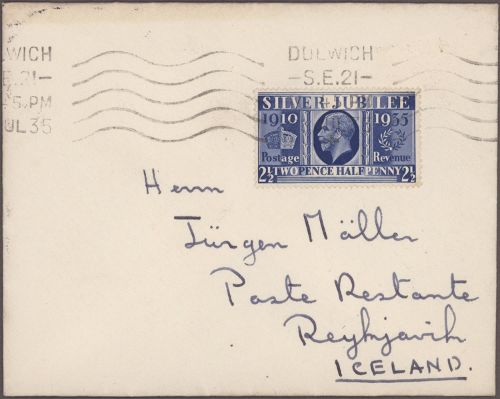 WICH DULWICH
.E.21— —S.E.21—
5.PM
UL35
SILVER JUBILEE
1910 1935
Postage Revenue
2½ TWO PENCE HALFPENNY 2½
Herrn
Jürgen Mäller
Poste Restante
Reykjavik
ICELAND.